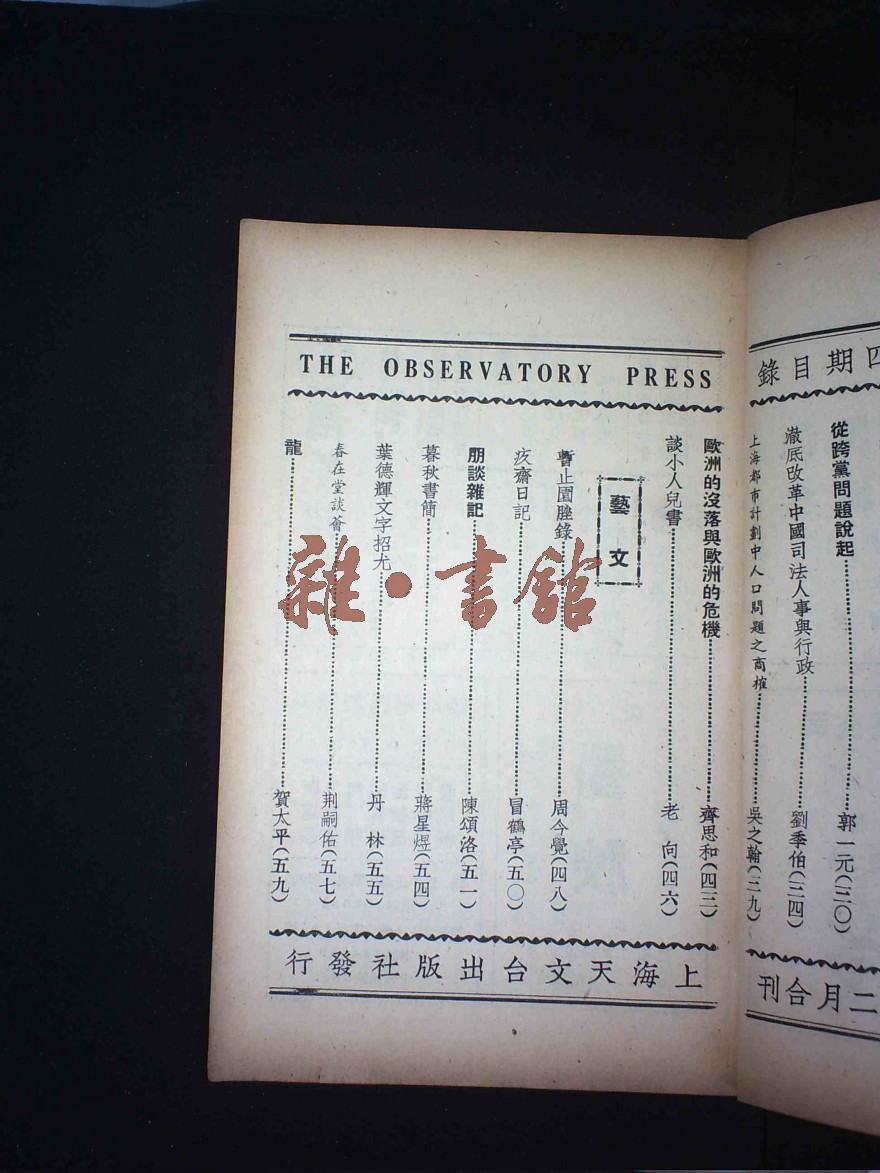 四期目錄
從跨黨問題說起……郭一元(三〇)
澈底改革中國司法人事與行政……劉季伯(三四)
上海都市計劃中人口問題之商榷……吳之翰(三九)
二月合刊
THE OBSERVATORY PRESS
歐洲的沒落與歐洲的危機……齊思和(四三)
談小人兒書……老 向(四六)
藝文
暫止園脞錄……周今覺(四八)
疚齋日記……冒鶴亭(五〇)
朋談雜記……陳頌洛(五一)
暮秋書簡……蔣星煜(五四)
葉德輝文字招尤……丹 林(五五)
春在堂談薈……荆嗣佑(五七)
龍……賀太平(五九)
上海天文台出版社發行
雜·書館